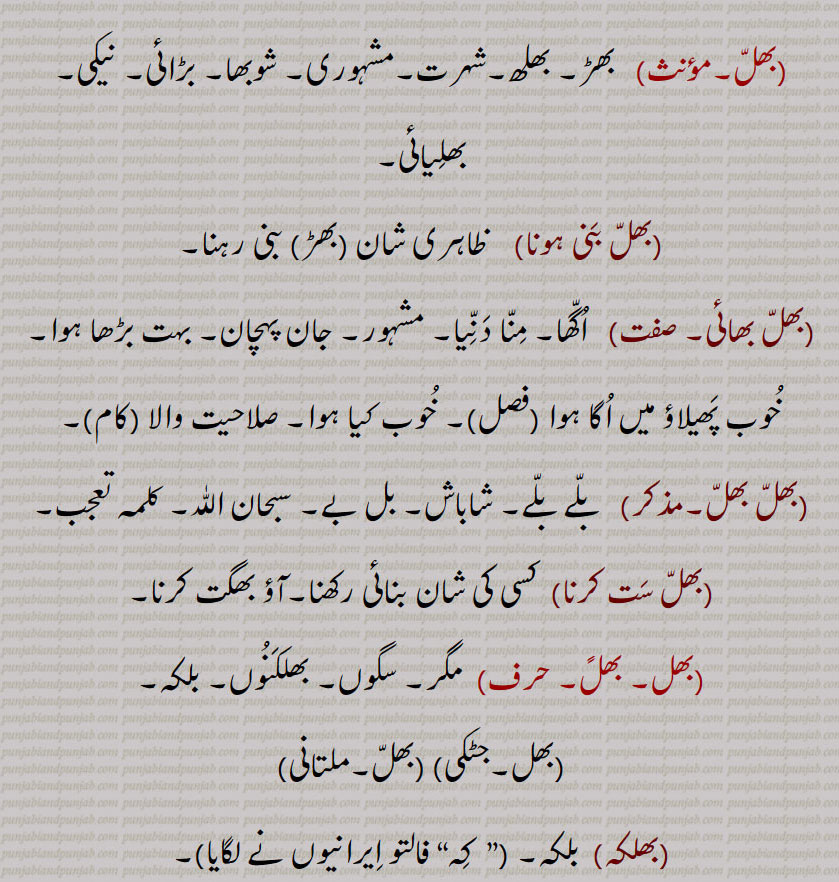 (بھلّ۔مؤنث) بھڑ۔ بھلھ۔شہرت۔مشہوری۔ شوبھا۔ بڑائی۔ نیکی۔
بھلِیائی۔
(بھلّ بَنی ہونا) ظاہری شان (بھڑ) بنی رہنا۔
(بھلّ بھائی۔ صفت) اُگھّا۔ مِنّا دَنِّیا۔ مشہور۔ جان پہچان۔ بہت بڑھا ہوا۔
خُوب پَھیلاؤ میں اُگا ہوا (فصل)۔ خُوب کیا ہوا۔ صلاحیت والا (کام)۔
(بھلّ بھلّ۔مذکر) بلّے بلّے۔ شاباش۔ بل بے۔ سبحان اللہ۔ کلمہ تعجب۔
(بھلّ سَت کرنا) کسی کی شان بنائی رکھنا۔آؤ بھگت کرنا۔
(بھل۔ بھلً۔ حرف) مگر۔ سگوں۔ بھلَکَنُوں۔ بلکہ۔
(بھل۔جٹکی) (بھلّ۔ملتانی)
(بھلکہ) بلکہ۔ (” کِہ“ فالتو اِیرانیوں نے لگایا)۔